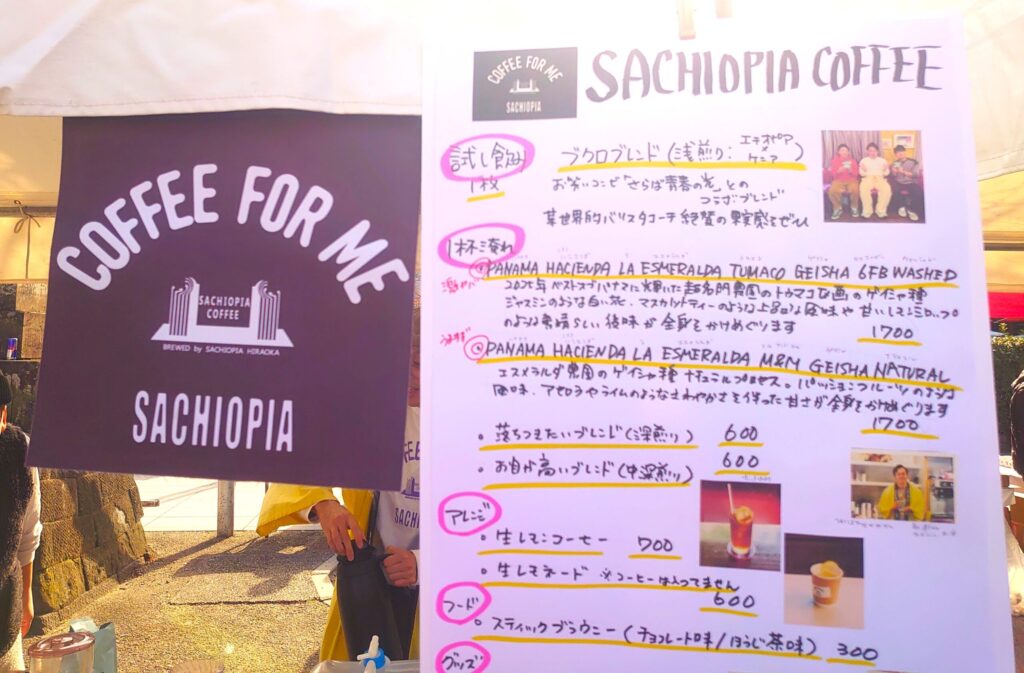 COFFEE FOR ME
SACHIOPIA
COFFEE
BREWED by SACHIOPIA HIRAOKA
SACHIOPIA
COFFEE FOR ME
SACHIOPIA
SACHIOPIA COFFEE
試し飲み
1枚
ブクロブレンド(浅煎り: エチオピア×ケニア)
お笑いコンビ「さらば青春の光」との
コラボブレンド
某世界的バリスタコーチ絶賛の果実感をぜひ
1杯ニ淹れ
PANAMA HACIENDA LA ESMERALDA TUMACO GEISHA 6FB WASHED
激ヤバ
2025年ベストオブパナマに輝いた超名門農園のトゥマコ区画のゲイシャ種
ジャスミンのような白い花、マスカットティーのような上品な風味や甘いレモンシロップ
のような素晴らしい後味が全身をかけめぐります
1700
PANAMA HACIENDA LA ESMERALDA M&M GEISHA NATURAL
エスメラルダ農園のゲイシャ種 ナチュラルプロセス。パッションフルーツのような
風味、アセロラやライムのようなさわやかさを伴った甘さが全身をかけめぐります
1700
落ちつきたいブレンド(深煎り) 600
お目が高いブレンド(中深煎り) 600
アレンジ
生レモンコーヒー 700
生レモネード ※コーヒーは入ってません
600
フード
スティックブラウニー(チョコレート味/ほうじ茶味) 300
グッズ
SACHI